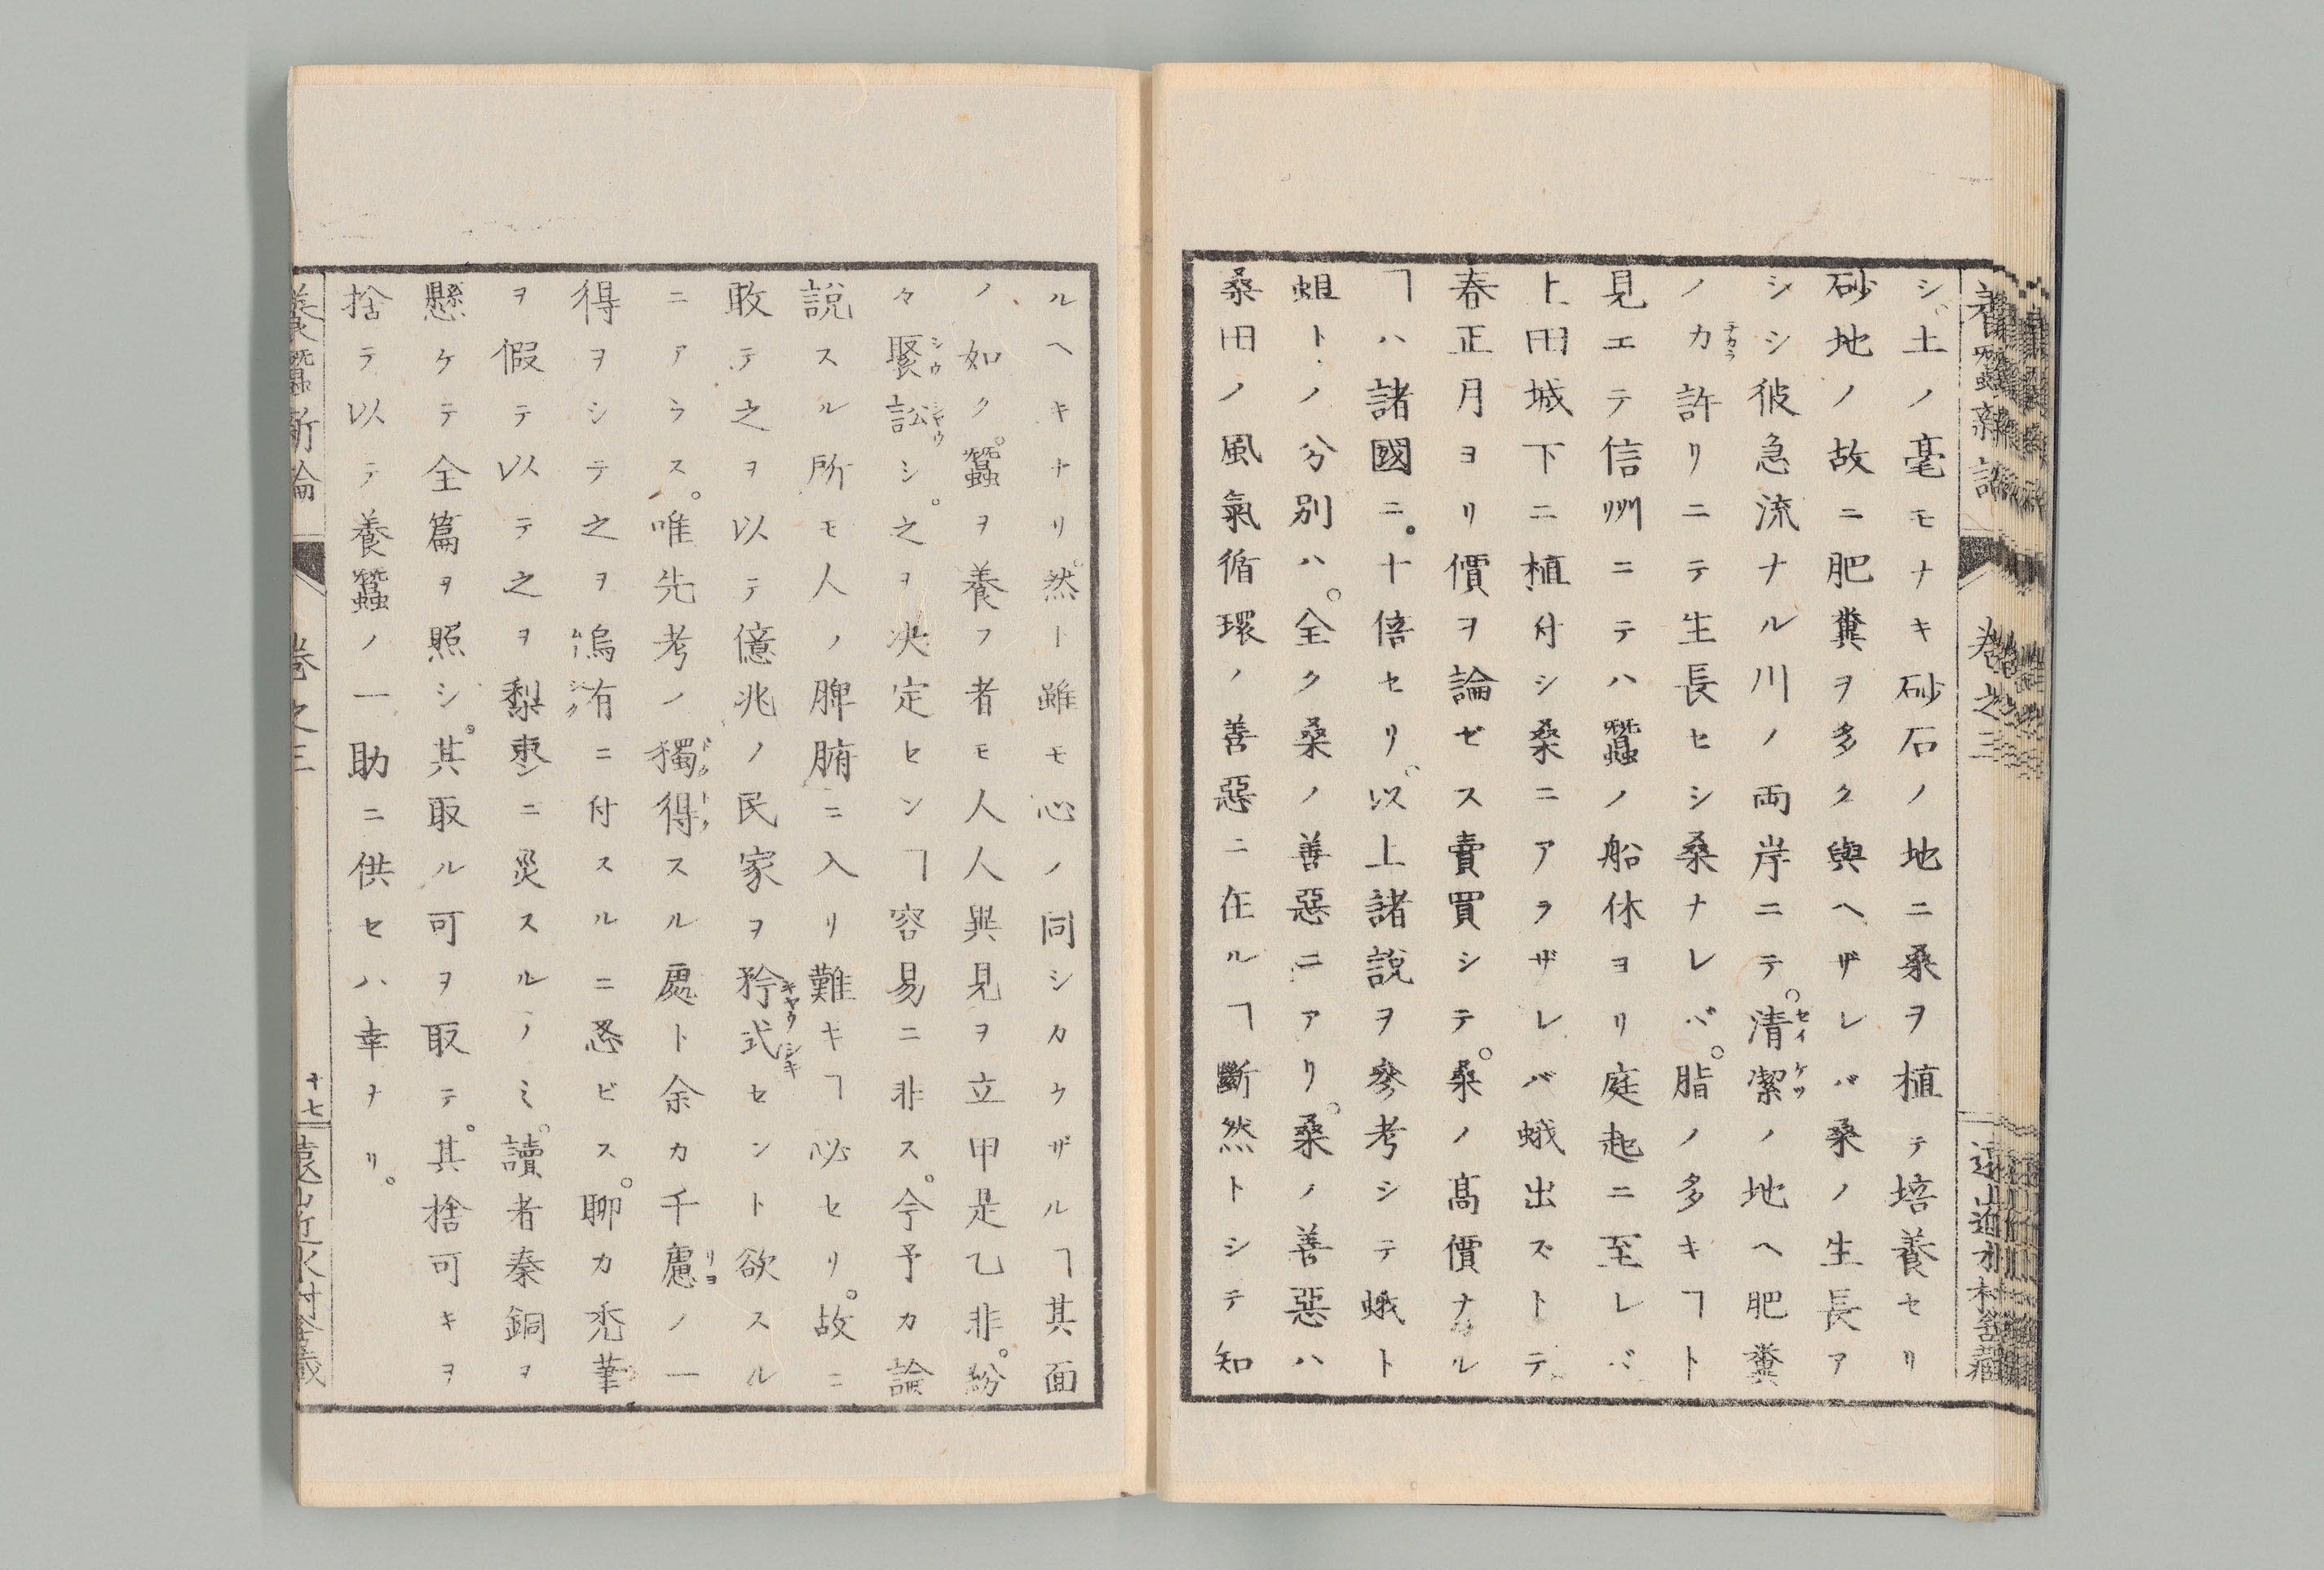 シ土ノ毫モナキ砂石ノ地ニ桑ヲ植テ培養セリ
砂地ノ故ニ肥糞ヲ多ク與ヘザレバ桑ノ生長ア
シシ彼急流ナル川ノ両岸ニテ。清潔ノ地ヘ肥糞
セイケツ
ノカ許リニテ生長セシ桑ナレバ。脂ノ多キヿト
チカラ
見エテ信州ニテハ蠶ノ船休ヨリ庭起ニ至レバ
上田城下ニ植付シ桑ニアラザレバ蛾出ズトテ
春正月ヨリ價ヲ論ゼス賣買シテ。桑ノ髙價ナル
ヿハ諸國ニ。十倍セリ。以上諸説ヲ參考シテ蛾ト
蛆トノ分別ハ。全ク桑ノ善惡ニアリ。桑ノ善惡ハ
桑田ノ風氣循環ノ善惡ニ在ルヿ斷然トシテ知
ルヘキナリ。然ト雖モ心ノ同シカウザルヿ其面
ノ如ク。蠶ヲ養フ者モ人人異見ヲ立甲是乙非。紛
々聚訟シ。之ヲ决定センヿ容易ニ非ス。今予カ論
シウシヤウ
說スル所モ人ノ脾腑ニ入リ難キヿ必セリ。故ニ
敢テ之ヲ以テ億兆ノ民家ヲ矜式セント欲スル
キヤウシキ
ニアラス。唯先考ノ獨得スル處ト余カ千慮ノ一
ドクトク
リヨ
得ヲシテ之ヲ烏有ニ付スルニ忍ビス。聊カ禿筆
ヲ假テ以テ之ヲ梨棗ニ災スルノミ。讀者秦銅ヲ
懸ケテ全篇ヲ照シ。其取ル可ヲ取テ。其捨可キヲ
捨テ以テ養蠶ノ一助ニ供セハ幸ナリ。
養蠶新論
卷之三
十七
遠山近水村舍藏